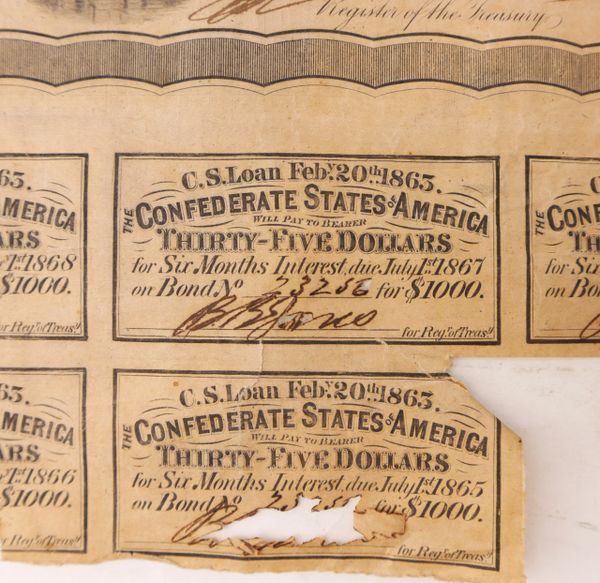 Register of the Treasury
63.
AMERICA
ARS
1st 1868
$1000.
for Reg.r of Treas.y
C.S. Loan Feb.y 20th 1863.
THE CONFEDERATE STATES of AMERICA
WILL PAY TO BEARER
THIRTY-FIVE DOLLARS
for Six Months Interest, due July 1st 1867
on Bond No 23256 for $1000.
for Reg.r of Treas.y
C
THE CONF
TH
for Si
on Bon
63.
AMERICA
ARS
1st 1866
$1000.
for Reg.r of Treas.y
C.S. Loan Feb.y 20th 1863.
THE CONFEDERATE STATES of AMERICA
WILL PAY TO BEARER
THIRTY-FIVE DOLLARS
for Six Months Interest, due July 1st 1865
on Bond No for $1000.
for Reg.r of Treas.y